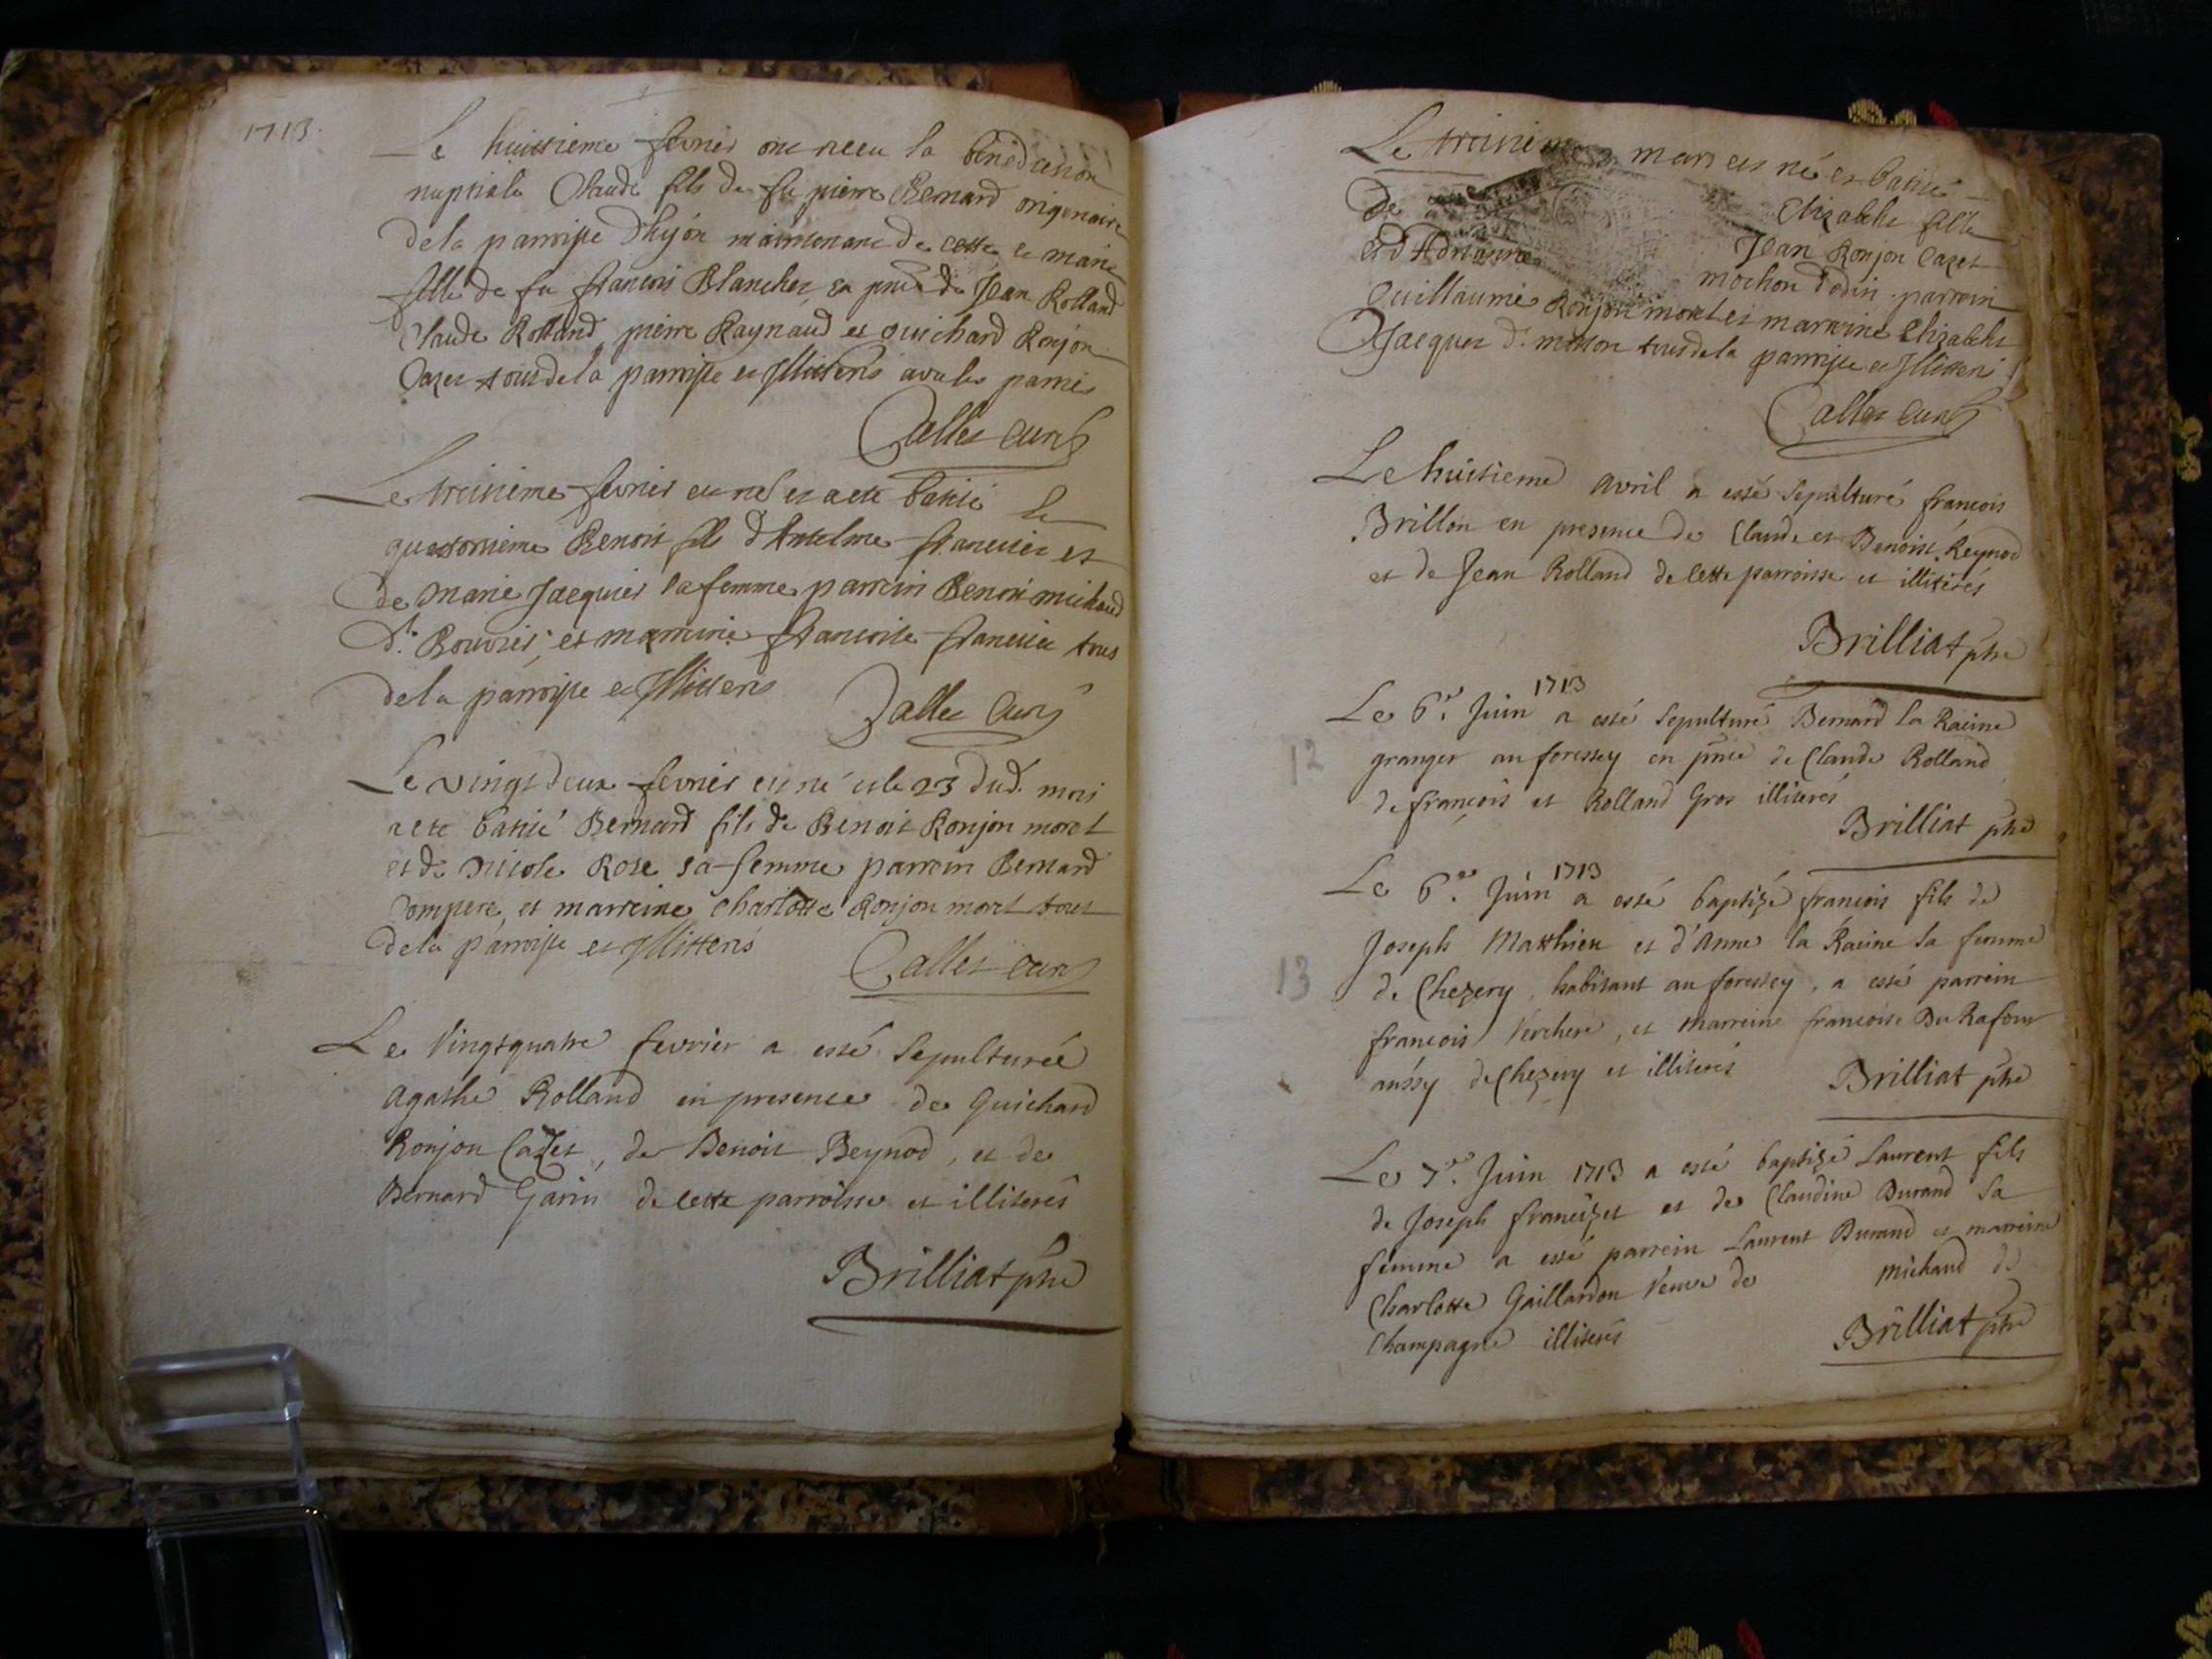 1713.
Le huittieme fevrier ont receu la benediction
nuptiale Claude fils de fu pierre Bernard originaire
dela parroisse d'hijon maintenant de cette et marie
fille de fu francois Blanchet en pnce de Jean Rolland
Claude Rolland, pierre Raynaud et guichard Ronjon
Cazet tous dela parroisse et Illitterés
Callet curé
Le treisieme fevrier est né et a ete batisé le
quatorsieme Benoit fils d'Antelme francicer et
de marie Jacquier sa femme parrein Benoit michaud
dt. Rouvier, et marreine francoise tous
dela parroisse et Illitterés
Callet Curé
Le vingt deux fevrier est né et le 23 dud. mois
a ete batisé Bernard fils de Benoit Ronjon moret
et de nicole Rose sa femme parrein Bernard
Compere, et marreine Charlotte Ronjon moret tous
dela parroisse et Illitterés
Callet curé
Le Vingtquatre fevrier a esté Sepulturée
Agathe Rolland en presence de Guichard
Ronjon Cazet, de Benoit Beynod, et de
Bernard Garin de cette parroisse et illiterés
Brilliat ptre
Le treisieme mars est né et batisé
Elizabeht fille
de Jean Ronjon Cazet
et d'Adrianne mochon d'odin parrein
Guillaume Ronjon moret et marreine Elizabeht
Jacquet dt. tous dela parroisse et Illitteré
Callet Curé
Le huitieme avril a esté Sepulturé francois
Brillon en presence de Claude et Benoist Reynod
et de Jean Rolland de cette parroisse et illiterés
Brilliat ptre
1713
Le 6e. Juin a esté Sepulturé Bernard la Racine
12
granger au foressey en pnce de Claude Rolland
de françois et Rolland Gros illiterés
Brilliat ptre
1713
Le 6e. Juin a esté baptizé francois fils de
Joseph Matthieu et d'Anne la Racine sa femme
13
de Chezery, habitant au foressey, a esté parrein
francois Verchere, et marreine francoise Du Rafour
aussy de Chezery et illiterés
Brilliat ptre
Le 7e. Juin 1713 a esté baptizé Laurent fils
de Joseph francizet et de Claudine Durand sa
femme a esté parrein Laurent Durand et marreine
Charlotte Gaillardon Veuve de michaud de
Champagne illiterés
Brilliat ptre